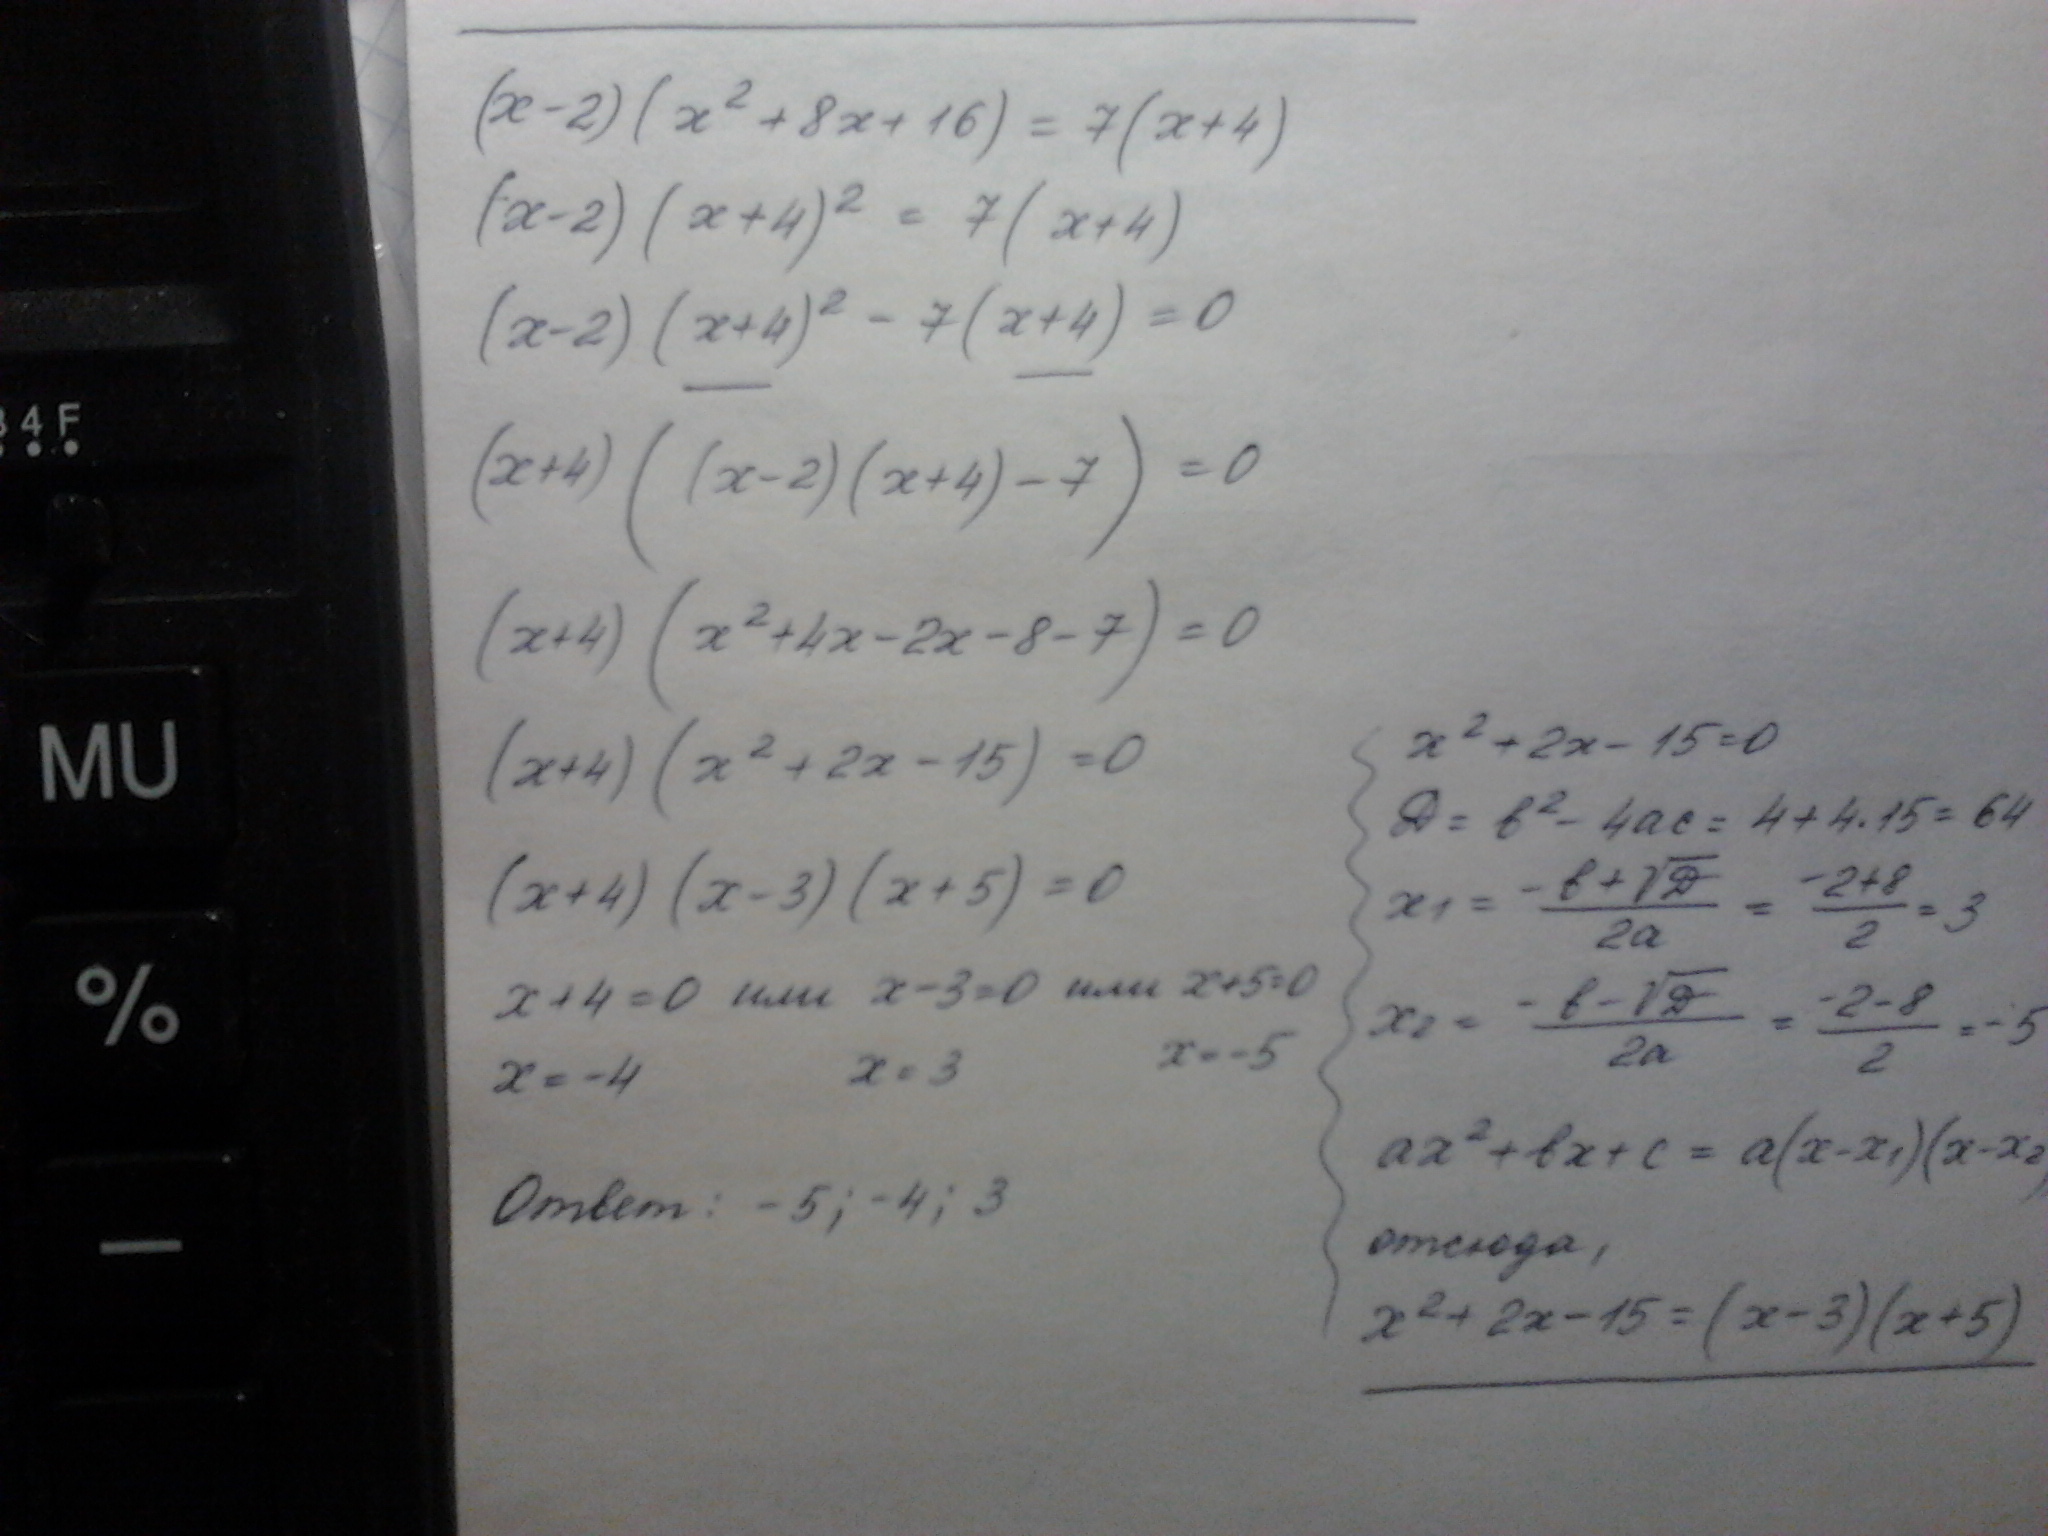 (x-2)(x²+8x+16)=7(x+4)
(x-2)(x+4)²=7(x+4)
(x-2)(x+4)²-7(x+4)=0
(x+4)((x-2)(x+4)-7)=0
(x+4)(x²+4x-2x-8-7)=0
(x+4)(x²+2x-15)=0
(x+4)(x-3)(x+5)=0
x+4=0 или x-3=0 или x+5=0
x=-4 x=3 x=-5
Ответ: -5; -4; 3
x²+2x-15=0
D=b²-4ac=4+4·15=64
x₁=(-b+√D)/2a=(-2+8)/2=3
x₂=(-b-√D)/2a=(-2-8)/2=-5
ax²+bx+c=a(x-x₁)(x-x₂)
отсюда,
x²+2x-15=(x-3)(x+5)
4 F
MU
%
−